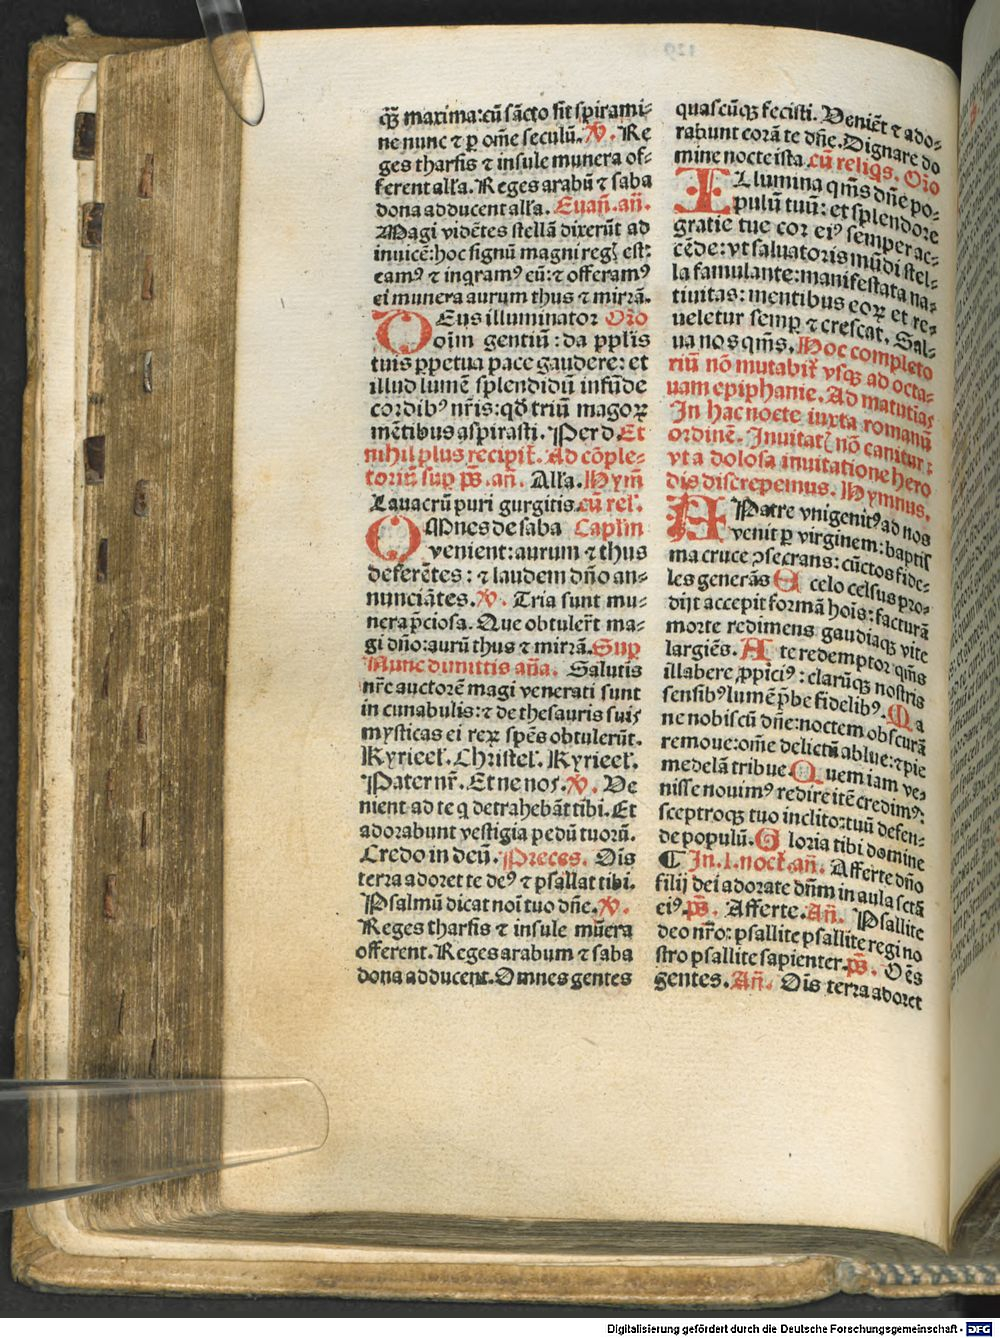 q̃ꝫ maxima:cū sācto sit spirami⸗
ne nunc ⁊ ꝑ om̄e seculū. ℣. Re
ges tharsis ⁊ insule munera of⸗
ferent all'a. Reges arabū ⁊ saba
dona adducent all'a. Euañ. añ.
Magi vidētes stellā dixerūt ad
inuicē:hoc signū magni regꝭ est:
eamꝰ ⁊ inqramꝰ eū:⁊ offeramꝰ
ei munera aurum thus ⁊ mirrā.
DEus illuminator Oro
oīm gentiū : da pplīs
tuis ꝑpetua pace gaudere: et
illud lumē splendidū infūde
cordibꝰ nr̄is: qd̄ triū magoꝝ
mētibus aspirasti. Per d. Et
nihil plus recipit̄. Ad cōple⸗
toriū sup ps̄. an̄. All'a. Hym̄
Lauacrū puri gurgitis. cū rel'.
OMnes de saba Caplm̄
venient: aurum ⁊ thus
deferētes : ⁊ laudem dño an⸗
nunciātes. ℣. Tria sunt mu⸗
nera p̄ciosa. Que obtuler̄t ma⸗
gi dño: aurū thus ⁊ mirrā. Sup
Nunc dimittis aña. Salutis
nr̄e auctorē magi venerati sunt
in cunabulis:⁊ de thesauris suis
mysticas ei reꝝ spēs obtulerūt.
Kyrieel'. Christel'. Kyrieel'.
Pater nr̄. Et ne nos. ℣. Ve
nient ad te q detrahebāt tibi. Et
adorabunt vestigia pedū tuorū.
Credo in deū. Preces. Oīs
terra adoret te deꝰ ⁊ psallat tibi.
Psalmū dicat noī tuo dñe. ℣.
Reges tharsis ⁊ insule mūera
offerent. Reges arabum ⁊ saba
dona adducent. Omnes gentes
quascūqꝫ fecisti. Veniēt ⁊ ado⸗
rabunt corā te dñe. Dignare do
mine nocte ista. cū reliqs. Oro
ILlumina qm̄s dñe po⸗
pulū tuū: et splendore
gratie tue cor eiꝰ semper ac⸗
cēde: vt saluatoris mūdi stel⸗
la famulante: manifestata na⸗
tiuitas: mentibus eoꝝ et re⸗
ueletur semꝑ ⁊ crescat. Sal⸗
ua nos qm̄s. Hoc completo
riū nō mutabit̄ vsqꝫ ad octa⸗
uam epiphanie. Ad matutīas
In hac nocte iuxta romanū
ordinē. Inuitatꝭ nō canitur:
vt a dolosa inuitatione hero
dis discrepemus. Hymnus.
A Patre vnigenitꝰ ad nos
venit ꝑ virginem: baptis
ma cruce ɔsecrans: cūctos fide⸗
les generās. E celo celsus pro⸗
dijt accepit formā hoīs: facturā
morte redimens gaudiaqꝫ vite
largiēs. A te redemptor qm̄s
illabere ꝓpiciꝰ : clarūqꝫ nostris
sensibꝰ lumē p̄be fidelibꝰ. Ma
ne nobiscū dñe: noctem obscurā
remoue: om̄e delictū ablue: ⁊ pie
medelā tribue. Quem iam ve⸗
nisse nouimꝰ redire itē credimꝰ:
sceptroqꝫ tuo inclito: tuū defen⸗
de populū. Gloria tibi domine
¶ In .1. noct̄. añ. Afferte dño
filij dei adorate dn̄m in aula sctā
eiꝰ. ps̄. Afferte. Añ. Psallite
deo nr̄o: psallite psallite regi no
stro psallite sapienter. ps̄. Oēs
gentes. Añ. Oīs terra adoret
Digitalisierung gefördert durch die Deutsche Forschungsgemeinschaft - DFG